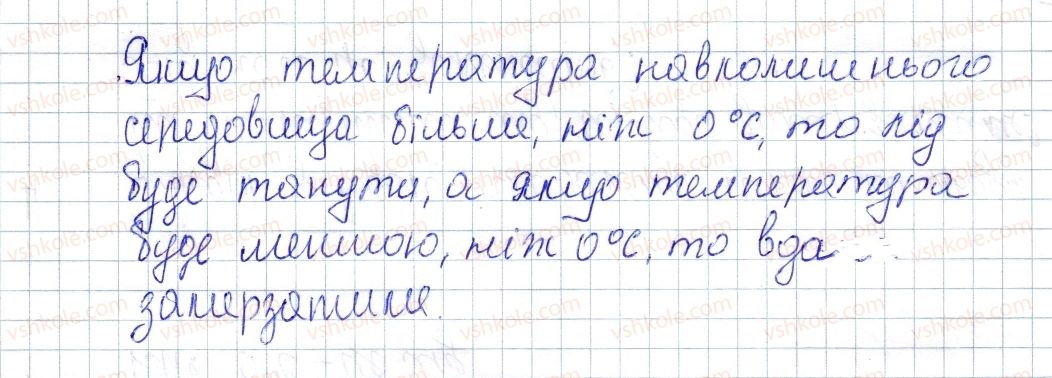 Якщо температура навколишнього
середовища більше, ніж 0°C, то лід
буде танути, а якщо температура
буде меншою, ніж 0°C, то вда
замерзатиме.